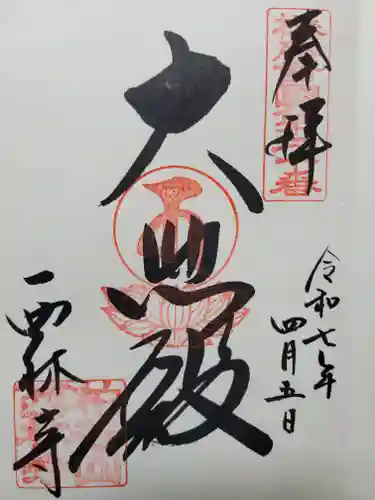 奉拝
大悲殿
令和七年
四月五日
西林寺